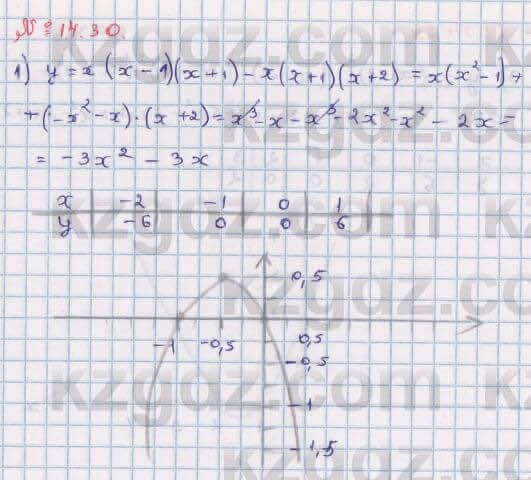 № 14.30.
1) y = x (x - 1)(x + 1) - x(x + 1)(x + 2) = x(x² - 1) +
+ (-x² - x) · (x + 2) = x³ - x - x³ - 2x² - x² - 2x =
= -3x² - 3x
x -2 -1 0 1
y -6 0 0 6
0,5
-1 -0,5 0,5
-0,5
-1
-1,5
kzgdz.com
kzgdz.com
kzgdz.com
kzgdz.com
kzgdz.com